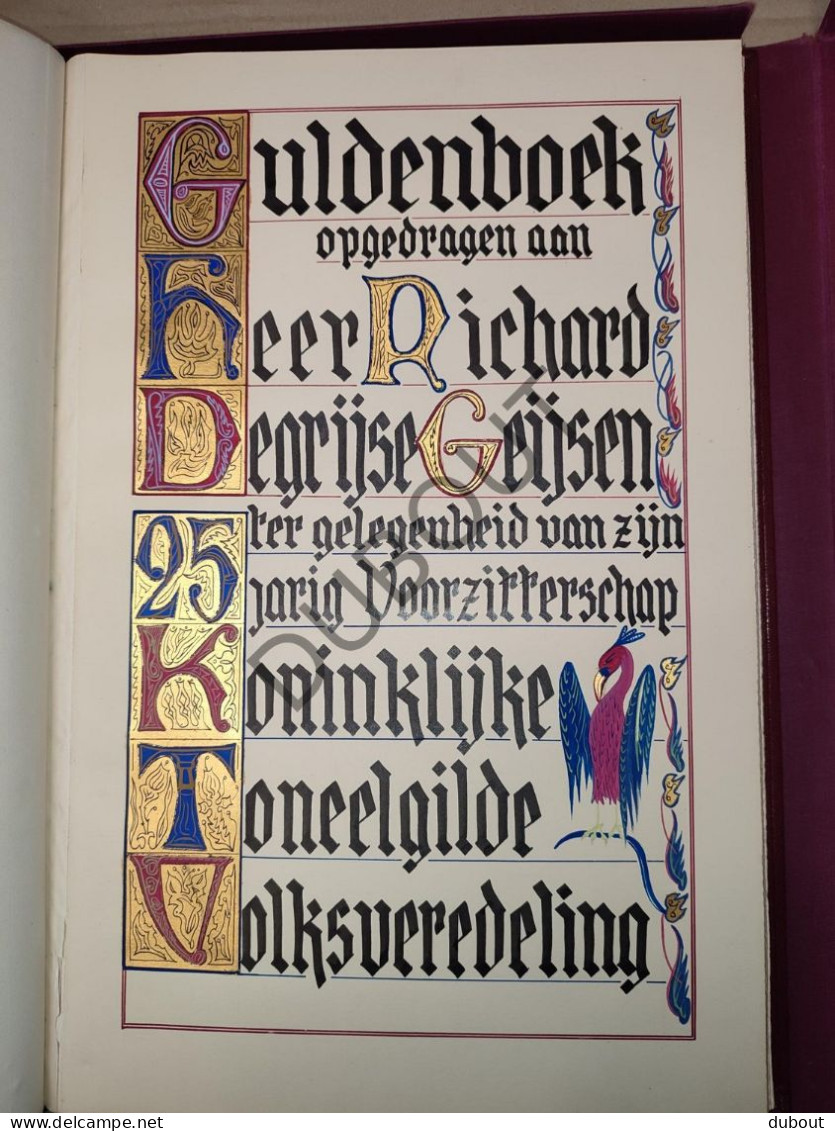 Guldenboek
opgedragen aan
Heer Richard
Degrijse Geijsen
ter gelegenheid van zijn
25 jarig Voorzitterschap
Koninklijke
Toneelgilde
Volksveredeling
DUBOUT
posted for sale on
delcampe.net
dubout